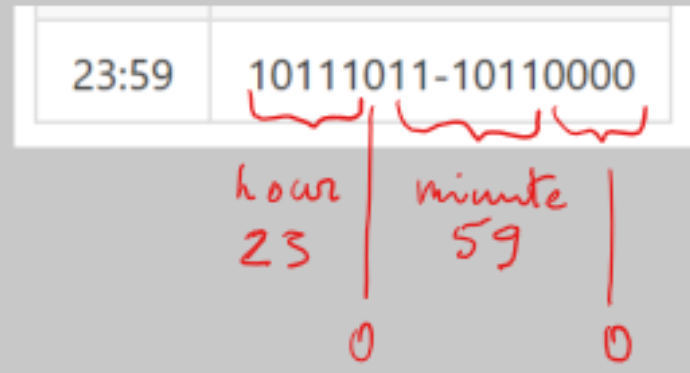 23:59 10111011-10110000
hour minute
23 59
0 0